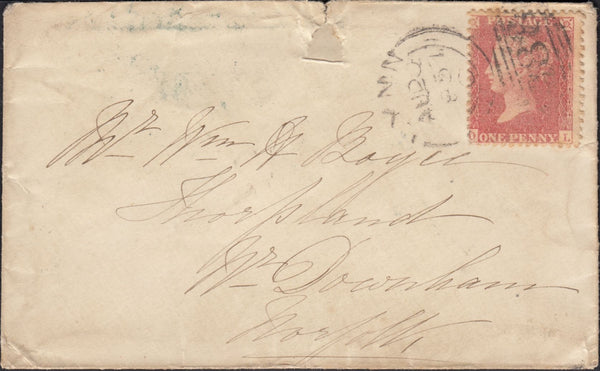 POSTAGE
LYNN
ONE PENNY
L
Mr Wm A Boyce
Thorpland
Nr Downham
Norfolk